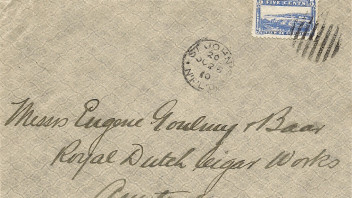 FIVE CENTS
ST JOHN'S
20
JU 25
10
N.F.L.D.
Messrs Eugene Goulmy & Baar
Royal Dutch Cigar Works